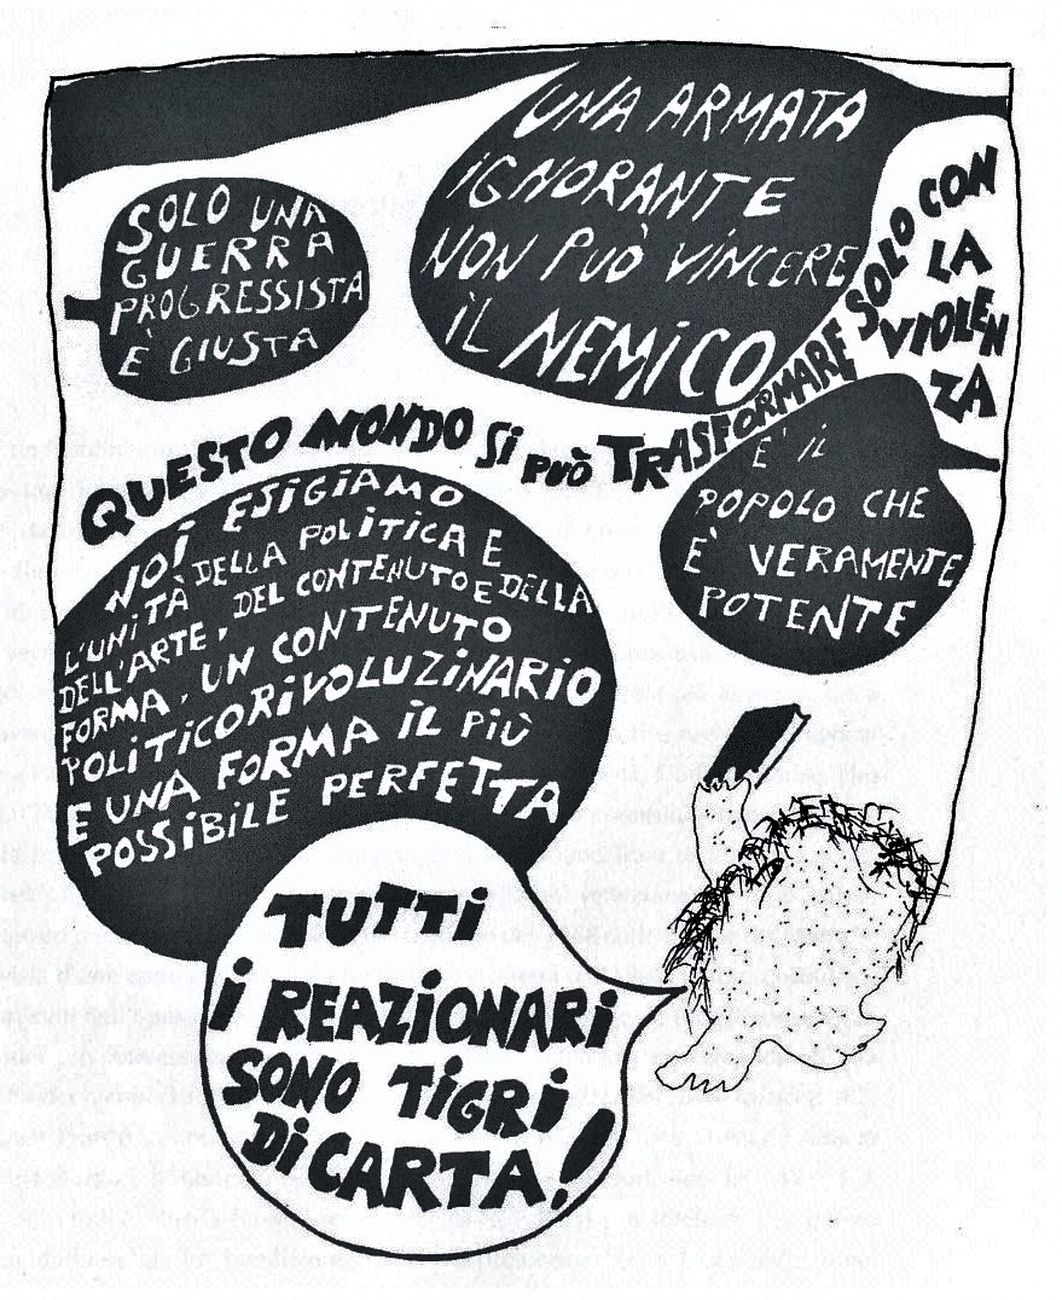 UNA ARMATA
IGNORANTE
NON PUÒ VINCERE
IL NEMICO
SOLO UNA
GUERRA
PROGRESSISTA
È GIUSTA
QUESTO MONDO SI PUÒ TRASFORMARE SOLO CON
LA
VIOLEN
ZA
E' IL
POPOLO CHE
E' VERAMENTE
POTENTE
NOI ESIGIAMO
L'UNITÀ DELLA POLITICA E
DELL'ARTE, DEL CONTENUTO E DELLA
FORMA, UN CONTENUTO
POLITICORIVOLUZINARIO
E UNA FORMA IL PIÙ
POSSIBILE PERFETTA
TUTTI
I REAZIONARI
SONO TIGRI
DI CARTA!